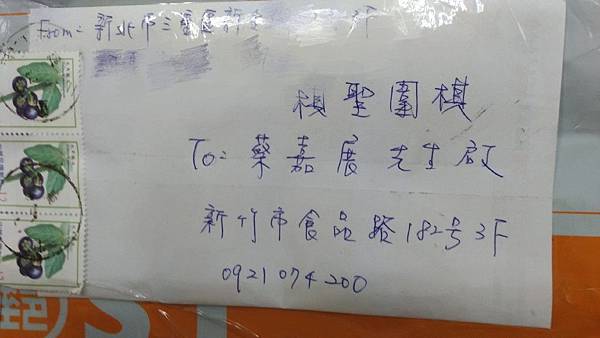 From: 新北市三重區新 F
棋聖圍棋
To: 蔡嘉展先生啟
新竹市食品路182号3F
0921 074 200
郵 ST